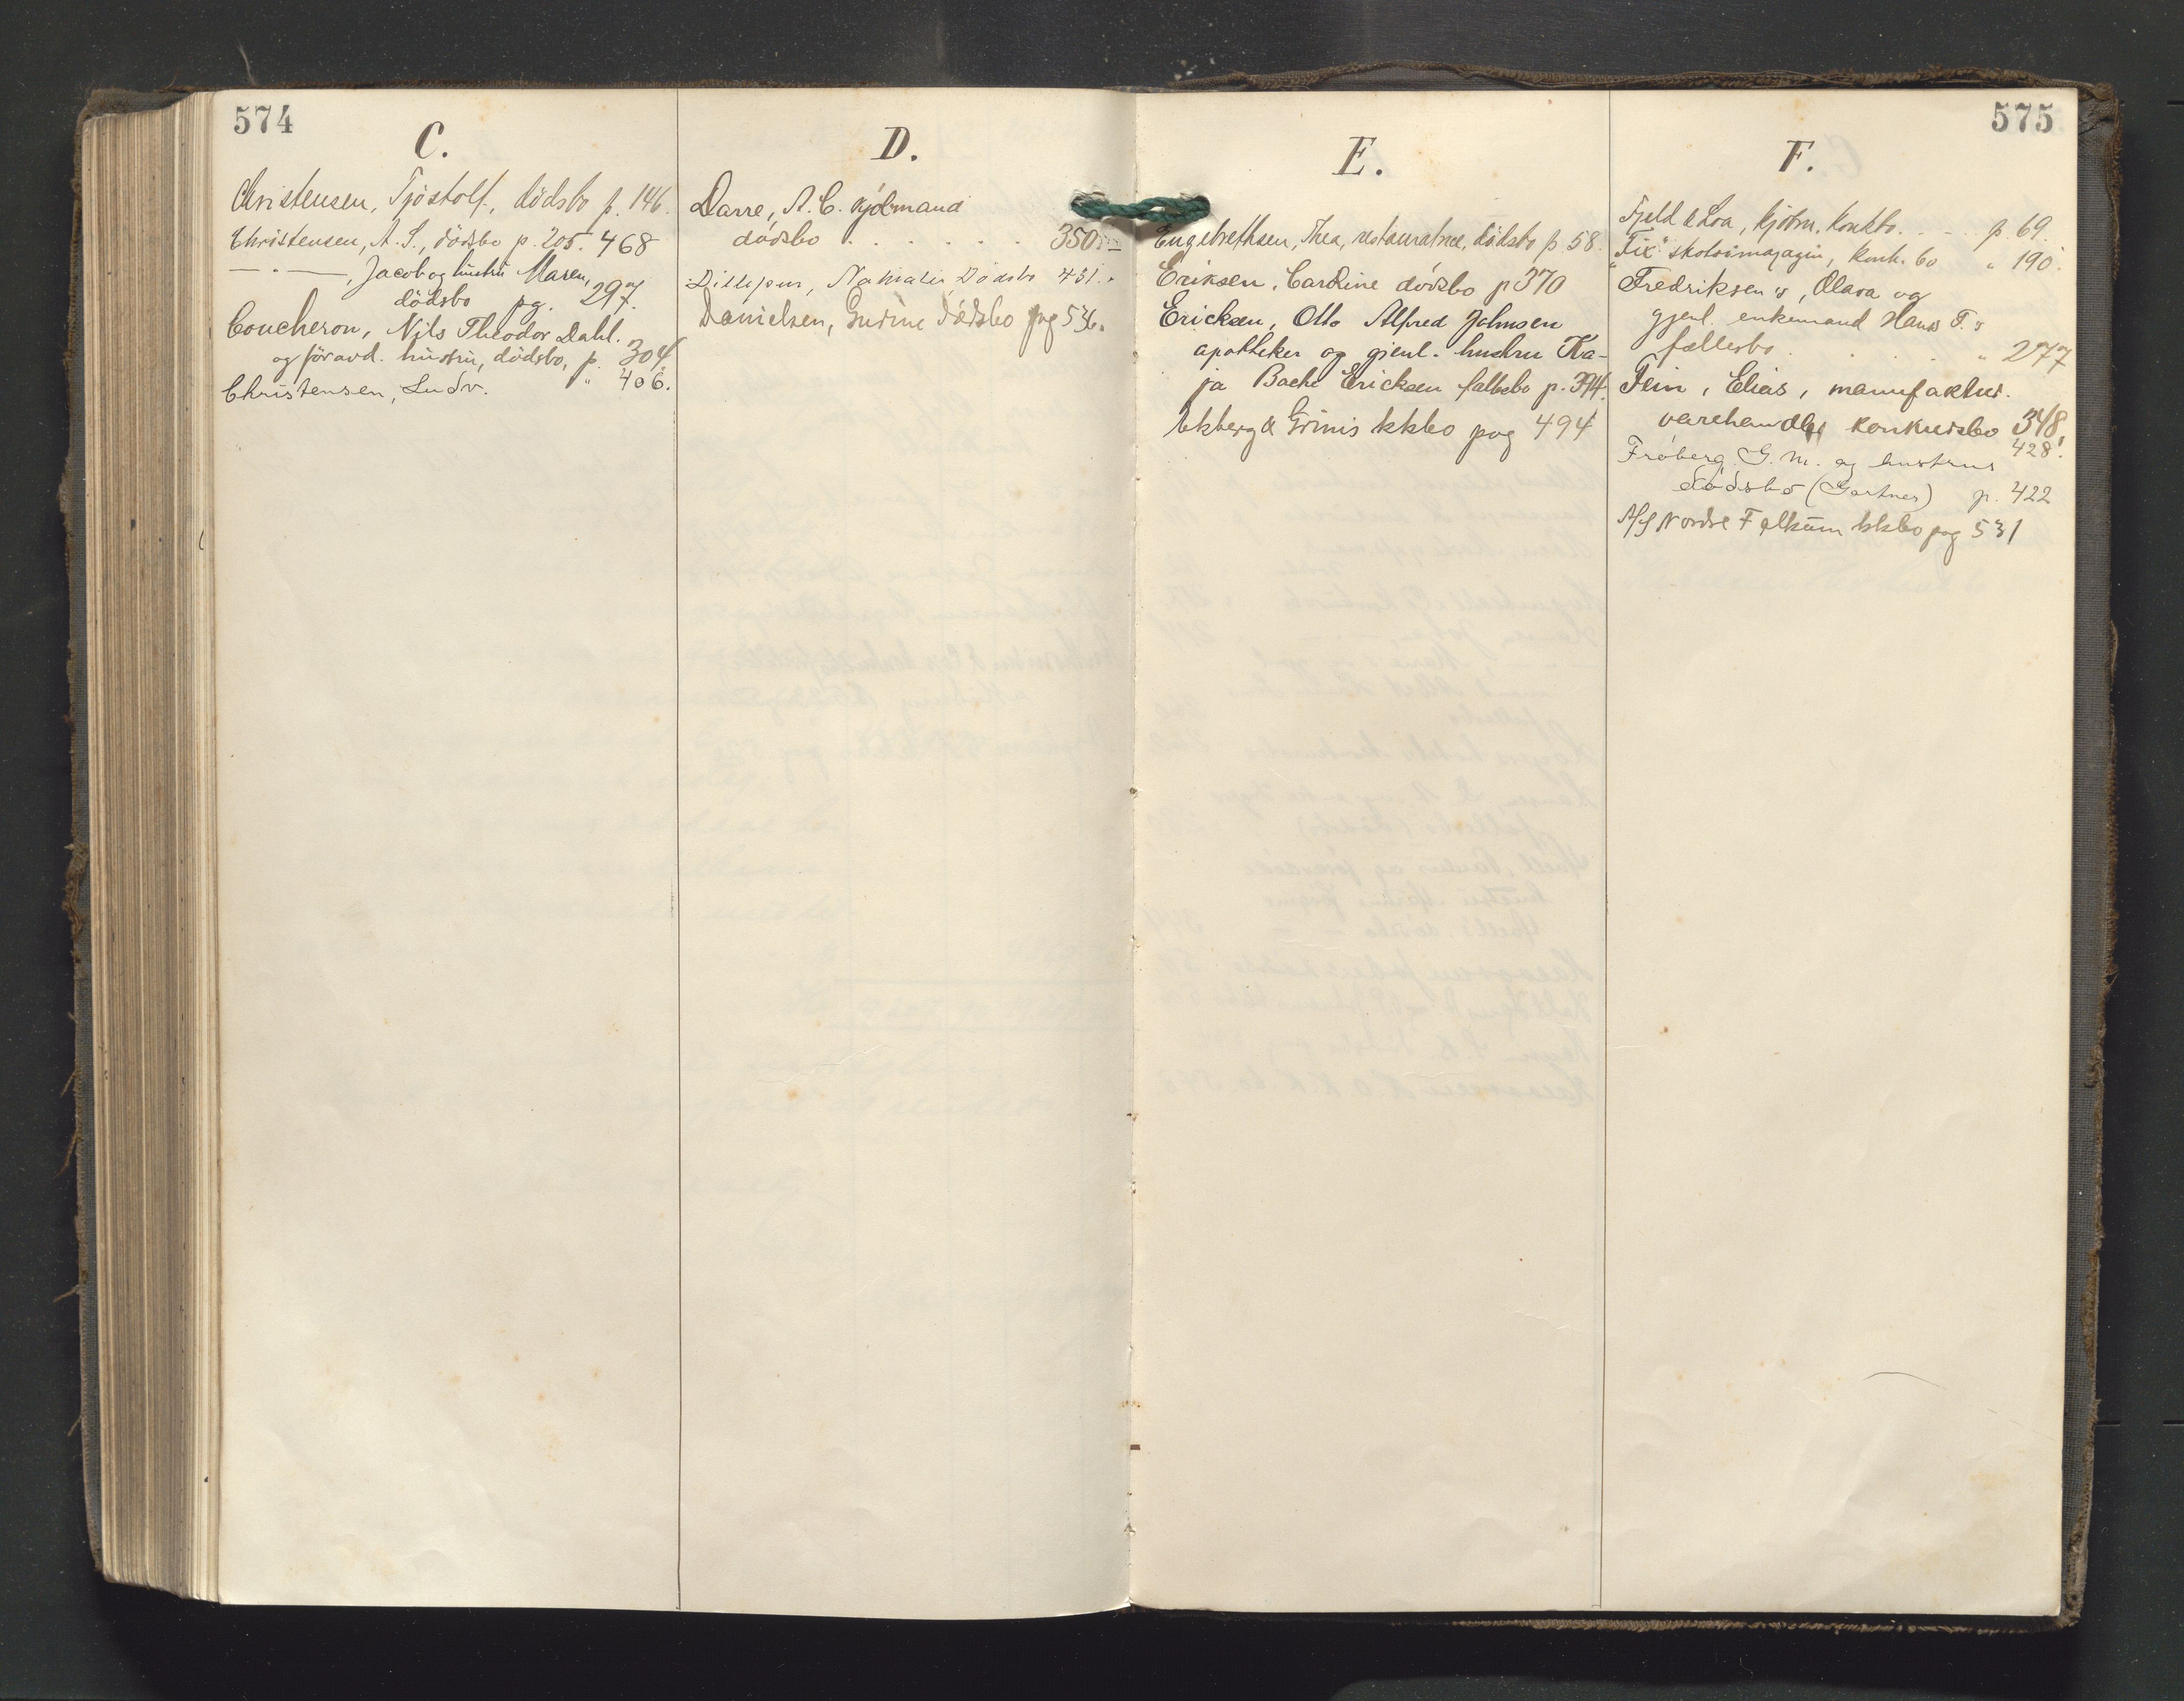 574
C.
Christensen, Tjöstolf, dödsbo p. 146.
Christensen, A. S., dödsbo p. 205. 468
— " —, Jacob og hustru Maren,
dödsbo pg. 297.
Coucheron, Nils Theodor Dahl.
og föravd. hustru, dödsbo, p. 304.
Christensen, Ludv. " 406.
D.
Darre, A. C. kjöbmand
dödsbo . . . . . . 350
Dödsbo 431.
Danielsen, Gurine dödsbo pag 536.
E.
Engebrethsen, Thea, dödsbo p. 58.
Eriksen, Caroline dödsbo p 370
Ericksen, Otto Alfred Johnsen
apotheker og gjenl. hustru Ka-
ja Bache Ericksen fællesbo p. 394.
Ekberg & Grinis kkbo pag 494
575
F.
Fjeld & Loa, kjöbm, konkbo. . - . p 69.
"Fix" skotöimagazin, konk. bo " 190.
Fredriksen's, Olava og
gjenl. enkemand Hans F.s
fællesbo . . . . " 277
Fein, Elias, manufaktur.
varehandler konkursbo 348,
428.
Fröberg, G. M. og hustrus
dödsbo (Gartner) p. 422
A/S Nordre Falkum kkbo pag 531